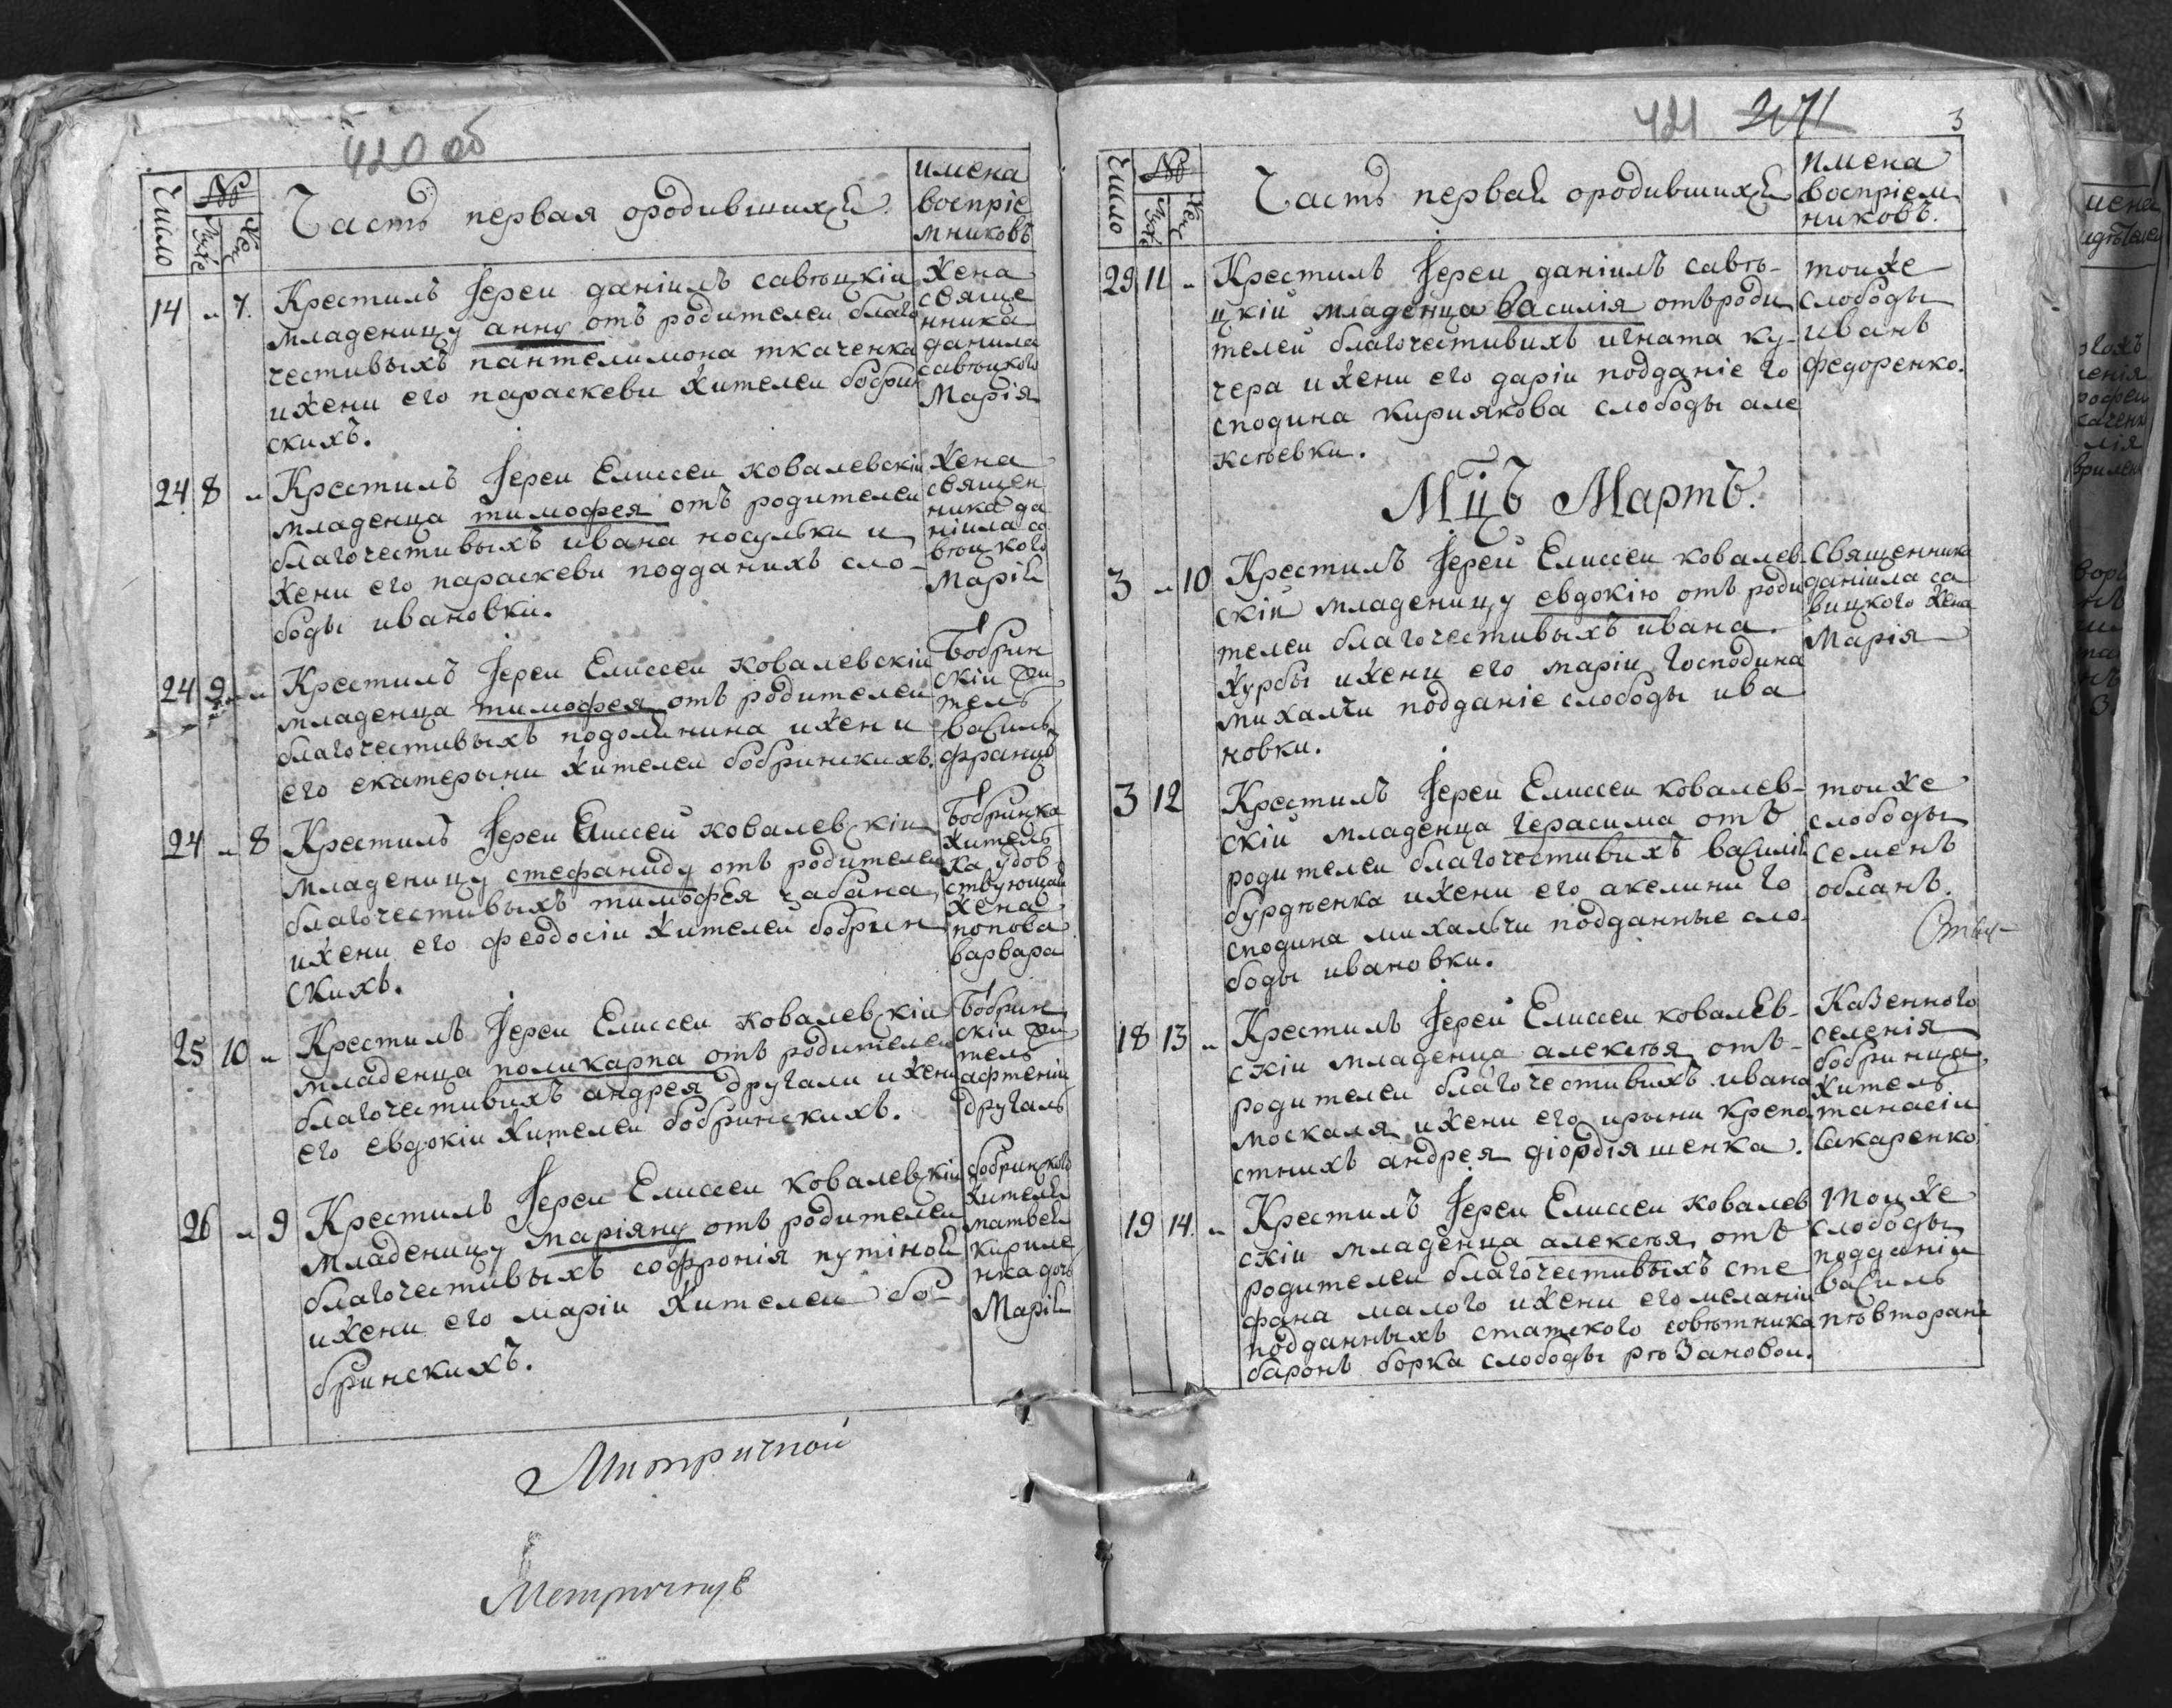 420 об
Число
№
Муже
Же
Часть первая ородившихся
имена
воспріе
мниковъ
14 „ 7. Крестилъ Іереи даніилъ савѣцкіи
младеницу анну отъ родителеи благо
честивыхъ пантелимона ткаченка
ижени его параскеви жителеи бобрин
скихъ.
жена
свяще
нника
данила
савѣцкого
Марія
24 8 „ Крестилъ Іереи Елисеи ковалевскіи
младенца тимофея отъ родителеи
благочестивыхъ ивана носульки и
жени его параскеви подданихъ сло-
боды ивановки.
жена
священ
ника да
ніила са
вѣцкого
Марія
24 9 „ Крестилъ Іереи Елисеи ковалевскіи
младенца тимофея отъ родителеи
благочестивыхъ подолинина ижени
его екатерыни жителеи бобринскихъ.
Бобрин
скіи жи
тель
василь
францъ
24 „ 8 Крестилъ Іереи Елисеи ковалевскіи
младеницу стефаниду отъ родителеи
благочестивыхъ тимофея чабана
ижени его феодосіи жителеи бобрин
скихъ.
Бобринка
жителъ
ка удов
ствующая
жена
попова
варвара
25 10 „ Крестилъ Іереи Елисеи ковалевскіи
младенца поликарпа отъ родителеи
благочестивихъ андрея другали ижени
его евдокіи жителеи бобринскихъ.
Бобрин
скіи жи
тель
афтеніи
другаль
26 „ 9 Крестилъ Іереи Елисеи ковалевскіи
младеницу маріяну отъ родителеи
благочестивыхъ софронія путіной
ижени его маріи жителеи бо-
бринскихъ.
бобринского
жителя
матвея
кириле
нка дочь
Марія
Митричной
421 271 3
Число
№
Муже
Же
Часть первая ородившихся
имена
воспріем
никовъ.
29 11 „ Крестилъ Іереи даніилъ савѣ-
цкіи младенца василія отъроди
телеи благочестивихъ игната ку-
чера ижени его даріи подданіе го
сподина кириякова слободы але
ксѣевки.
тоиже
слободы
иванъ
федоренко.
Мцъ Мартъ.
3 „ 10 Крестилъ Іереи Елисеи ковалев-
скіи младеницу евдокію отъ роди
телеи благочестивыхъ ивана
журбы ижени его маріи Господина
михалчи подданіе слободы ива
новки.
Священника
даніила са
вицкого жена
Марія
3 12 Крестилъ Іереи Елисеи ковалев-
скіи младенца герасима отъ
родителеи благочестивихъ василія
бурдѣенка ижени его акелини го
сподина михальчи подданные сло-
боды ивановки.
тоиже
слободы
семенъ
обланъ.
18 13 „ Крестилъ Іереи Елисеи ковалев-
скіи младенца алексѣя отъ-
родителеи благочестивихъ ивана
москаля ижени его ирыни крепо
стнихъ андрея діордіяшенка.
Казенного
селенія
бобринца
житель
танасіи
бакаренко
19 14. „ Крестилъ Іереи Елисеи ковалев
скіи младенца алексѣя отъ
родителеи благочестивыхъ сте
фана малого ижени его меланіи
подданныхъ статского совѣтника
баронъ борка слободы рѣзановои.
Тоиже
слободы
подданіи
василь
пѣвторанъ